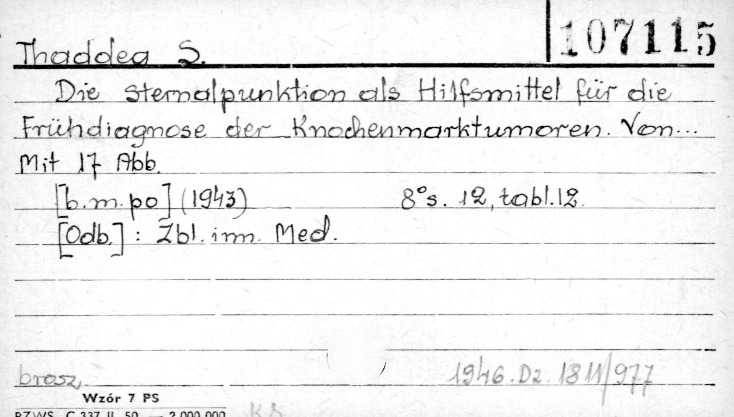 107115
Thaddea S.
Die Sternalpunktion als Hilfsmittel für die
Frühdiagnose der Knochenmarktumoren. Von...
Mit 17 Abb.
[b.m.po] (1943) 8° s. 12, tabl. 12.
[Odb.] : Zbl. inn. Med.
brosz.
1946. Dz. 18 /977
Wzór 7 PS
PZWS. C 337 II. 50 — 2.000.000
KS